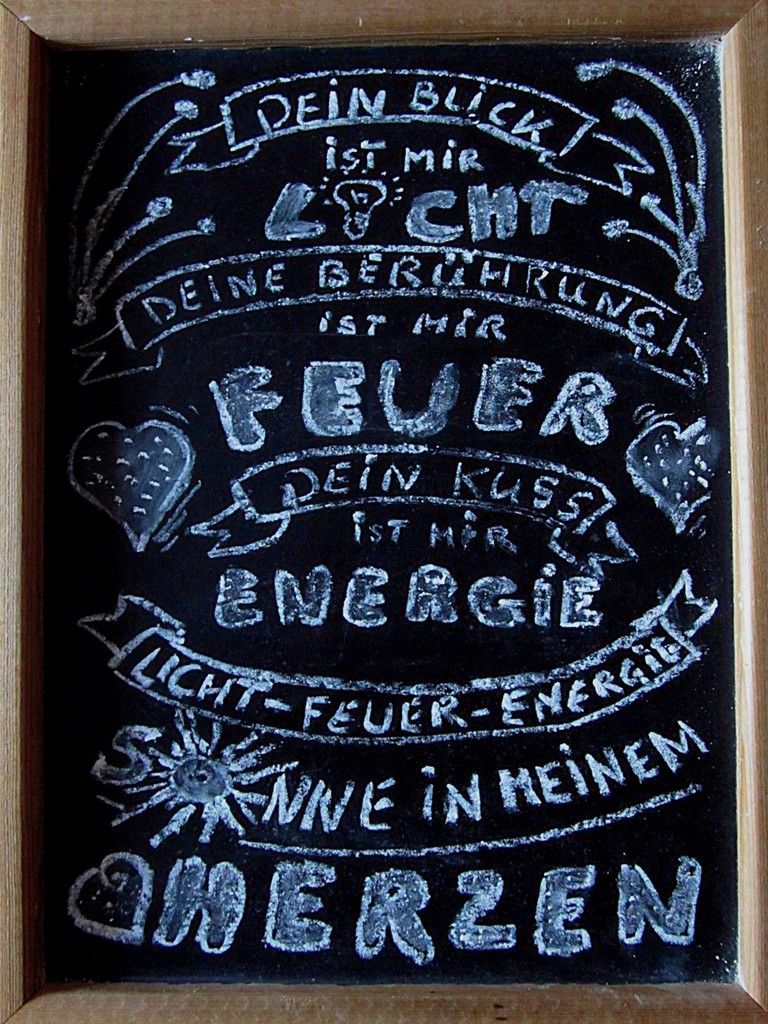 DEIN BLICK
IST MIR
LICHT
DEINE BERÜHRUNG
IST MIR
FEUER
DEIN KUSS
IST MIR
ENERGIE
LICHT-FEUER-ENERGIE
SONNE IN MEINEM
HERZEN